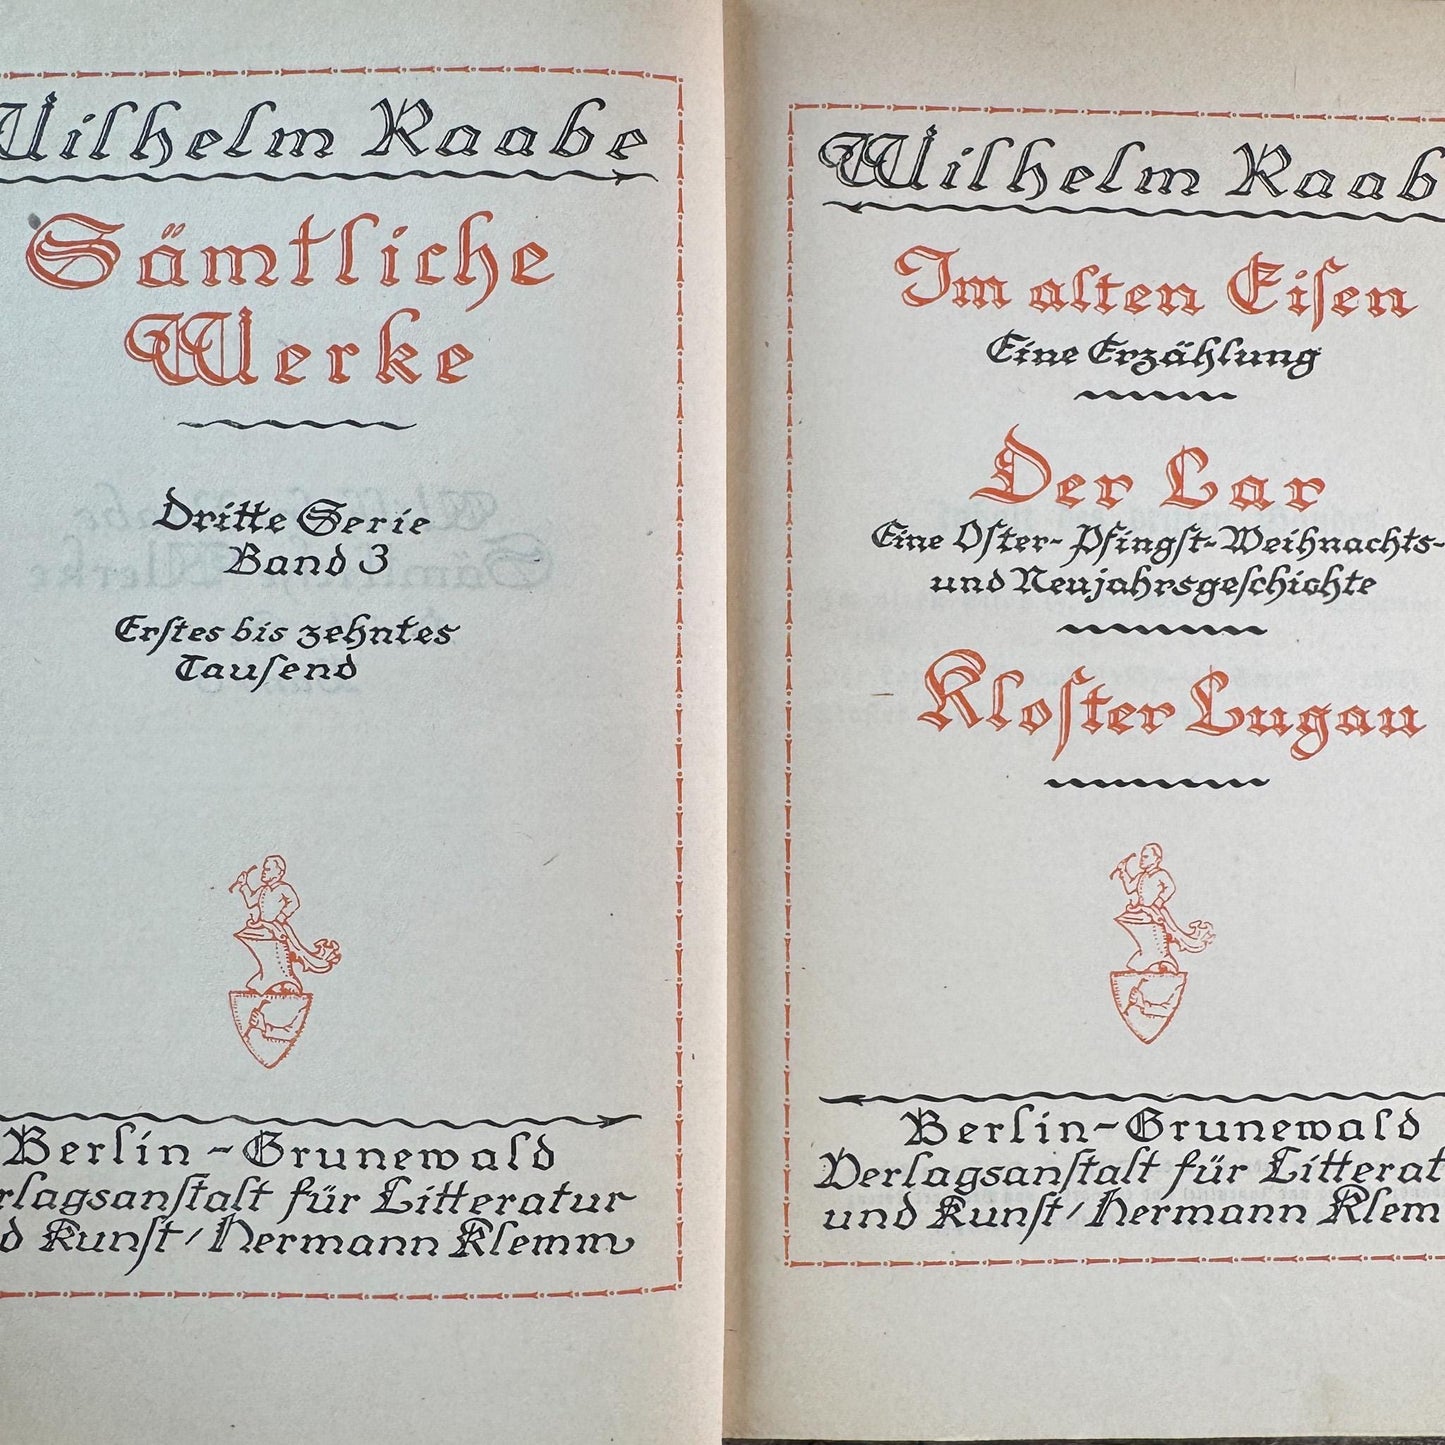 Wilhelm Raabe
Sämtliche
Werke
Dritte Serie
Band 3
Erstes bis zehntes
Tausend
Berlin-Grunewald
rlagsanstalt für Litteratur
d Kunst / Hermann Klemm
Wilhelm Raab
Im alten Eisen
Eine Erzählung
Der Lar
Eine Oster- Pfingst- Weihnachts-
und Neujahrsgeschichte
Kloster Lugau
Berlin-Grunewald
Verlagsanstalt für Litterat
und Kunst / Hermann Klem